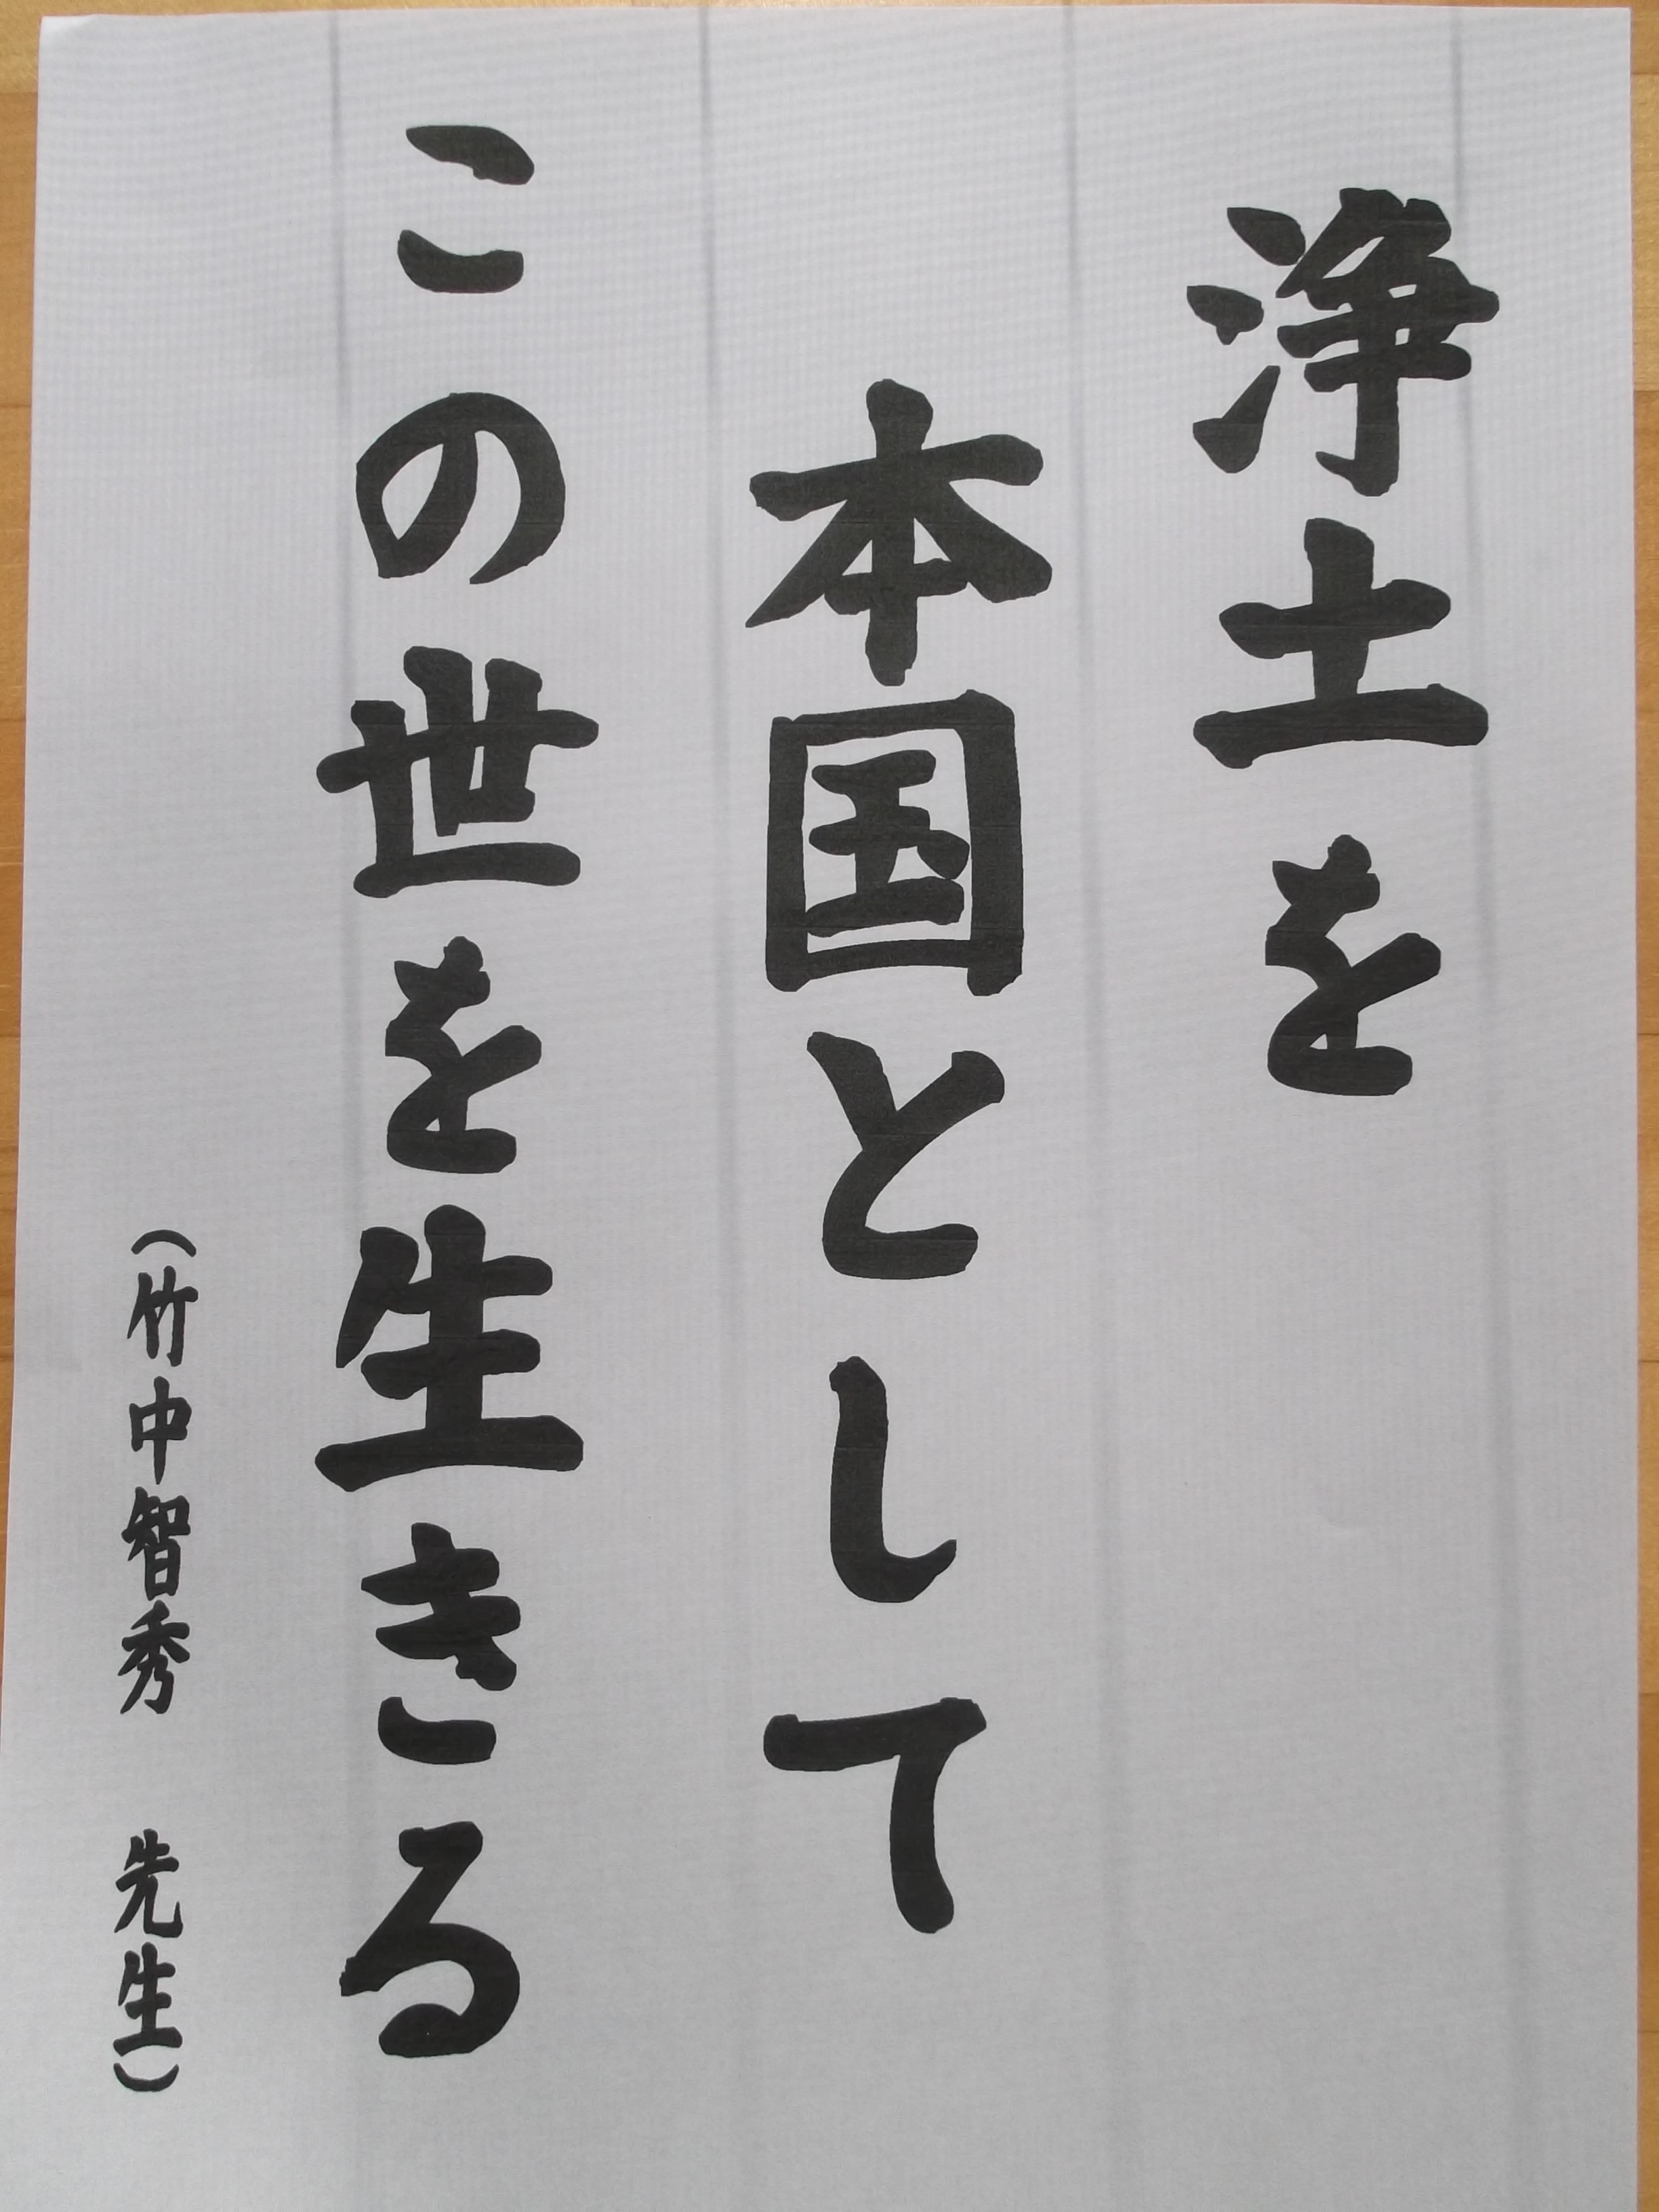 浄土を
本国として
この世を生きる
（竹中智秀　先生）